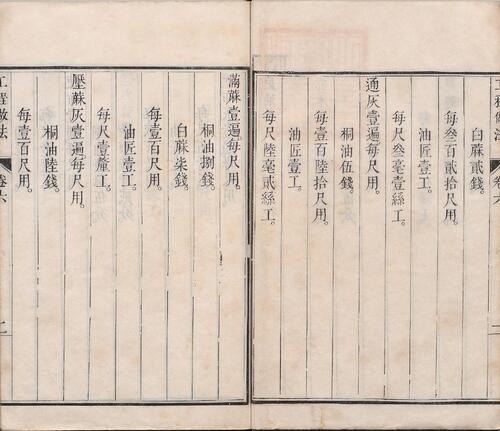 工程做法
卷六
白蔴貳錢。
每叁百貳拾尺用。
油匠壹工。
每尺叁毫壹絲工。
通灰壹遍每尺用。
桐油伍錢。
每壹百陸拾尺用。
油匠壹工。
每尺陸毫貳絲工。
滿蔴壹遍每尺用。
桐油捌錢。
白蔴柒錢。
每壹百尺用。
油匠壹工。
每尺壹釐工。
壓蔴灰壹遍每尺用。
桐油陸錢。
每壹百尺用。
工程做法
卷六
二